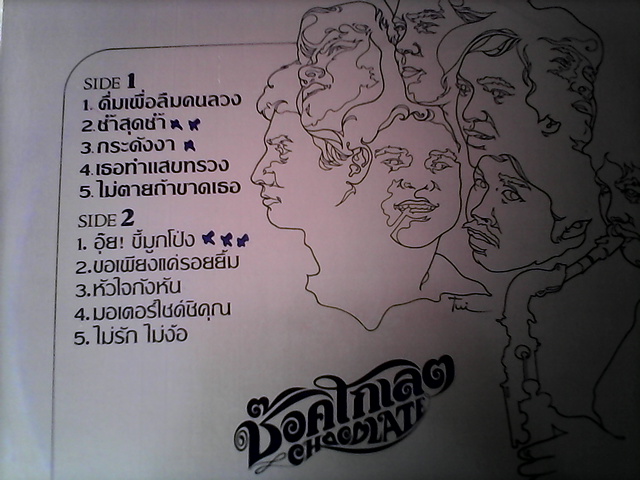 SIDE 1
1. ดื่มเพื่อลืมคนลวง
2. ช้ำสุดช้ำ
3. กระดังงา
4. เธอทำแสบทรวง
5. ไม่ตายถ้าขาดเธอ
SIDE 2
1. อุ๊ย! ขี้มูกโป่ง
2. ขอเพียงแค่รอยยิ้ม
3. หัวใจกังหัน
4. มอเตอร์ไซด์ชิคุณ
5. ไม่รัก ไม่ง้อ
ช๊อคโกเลต
CHOCOLATE